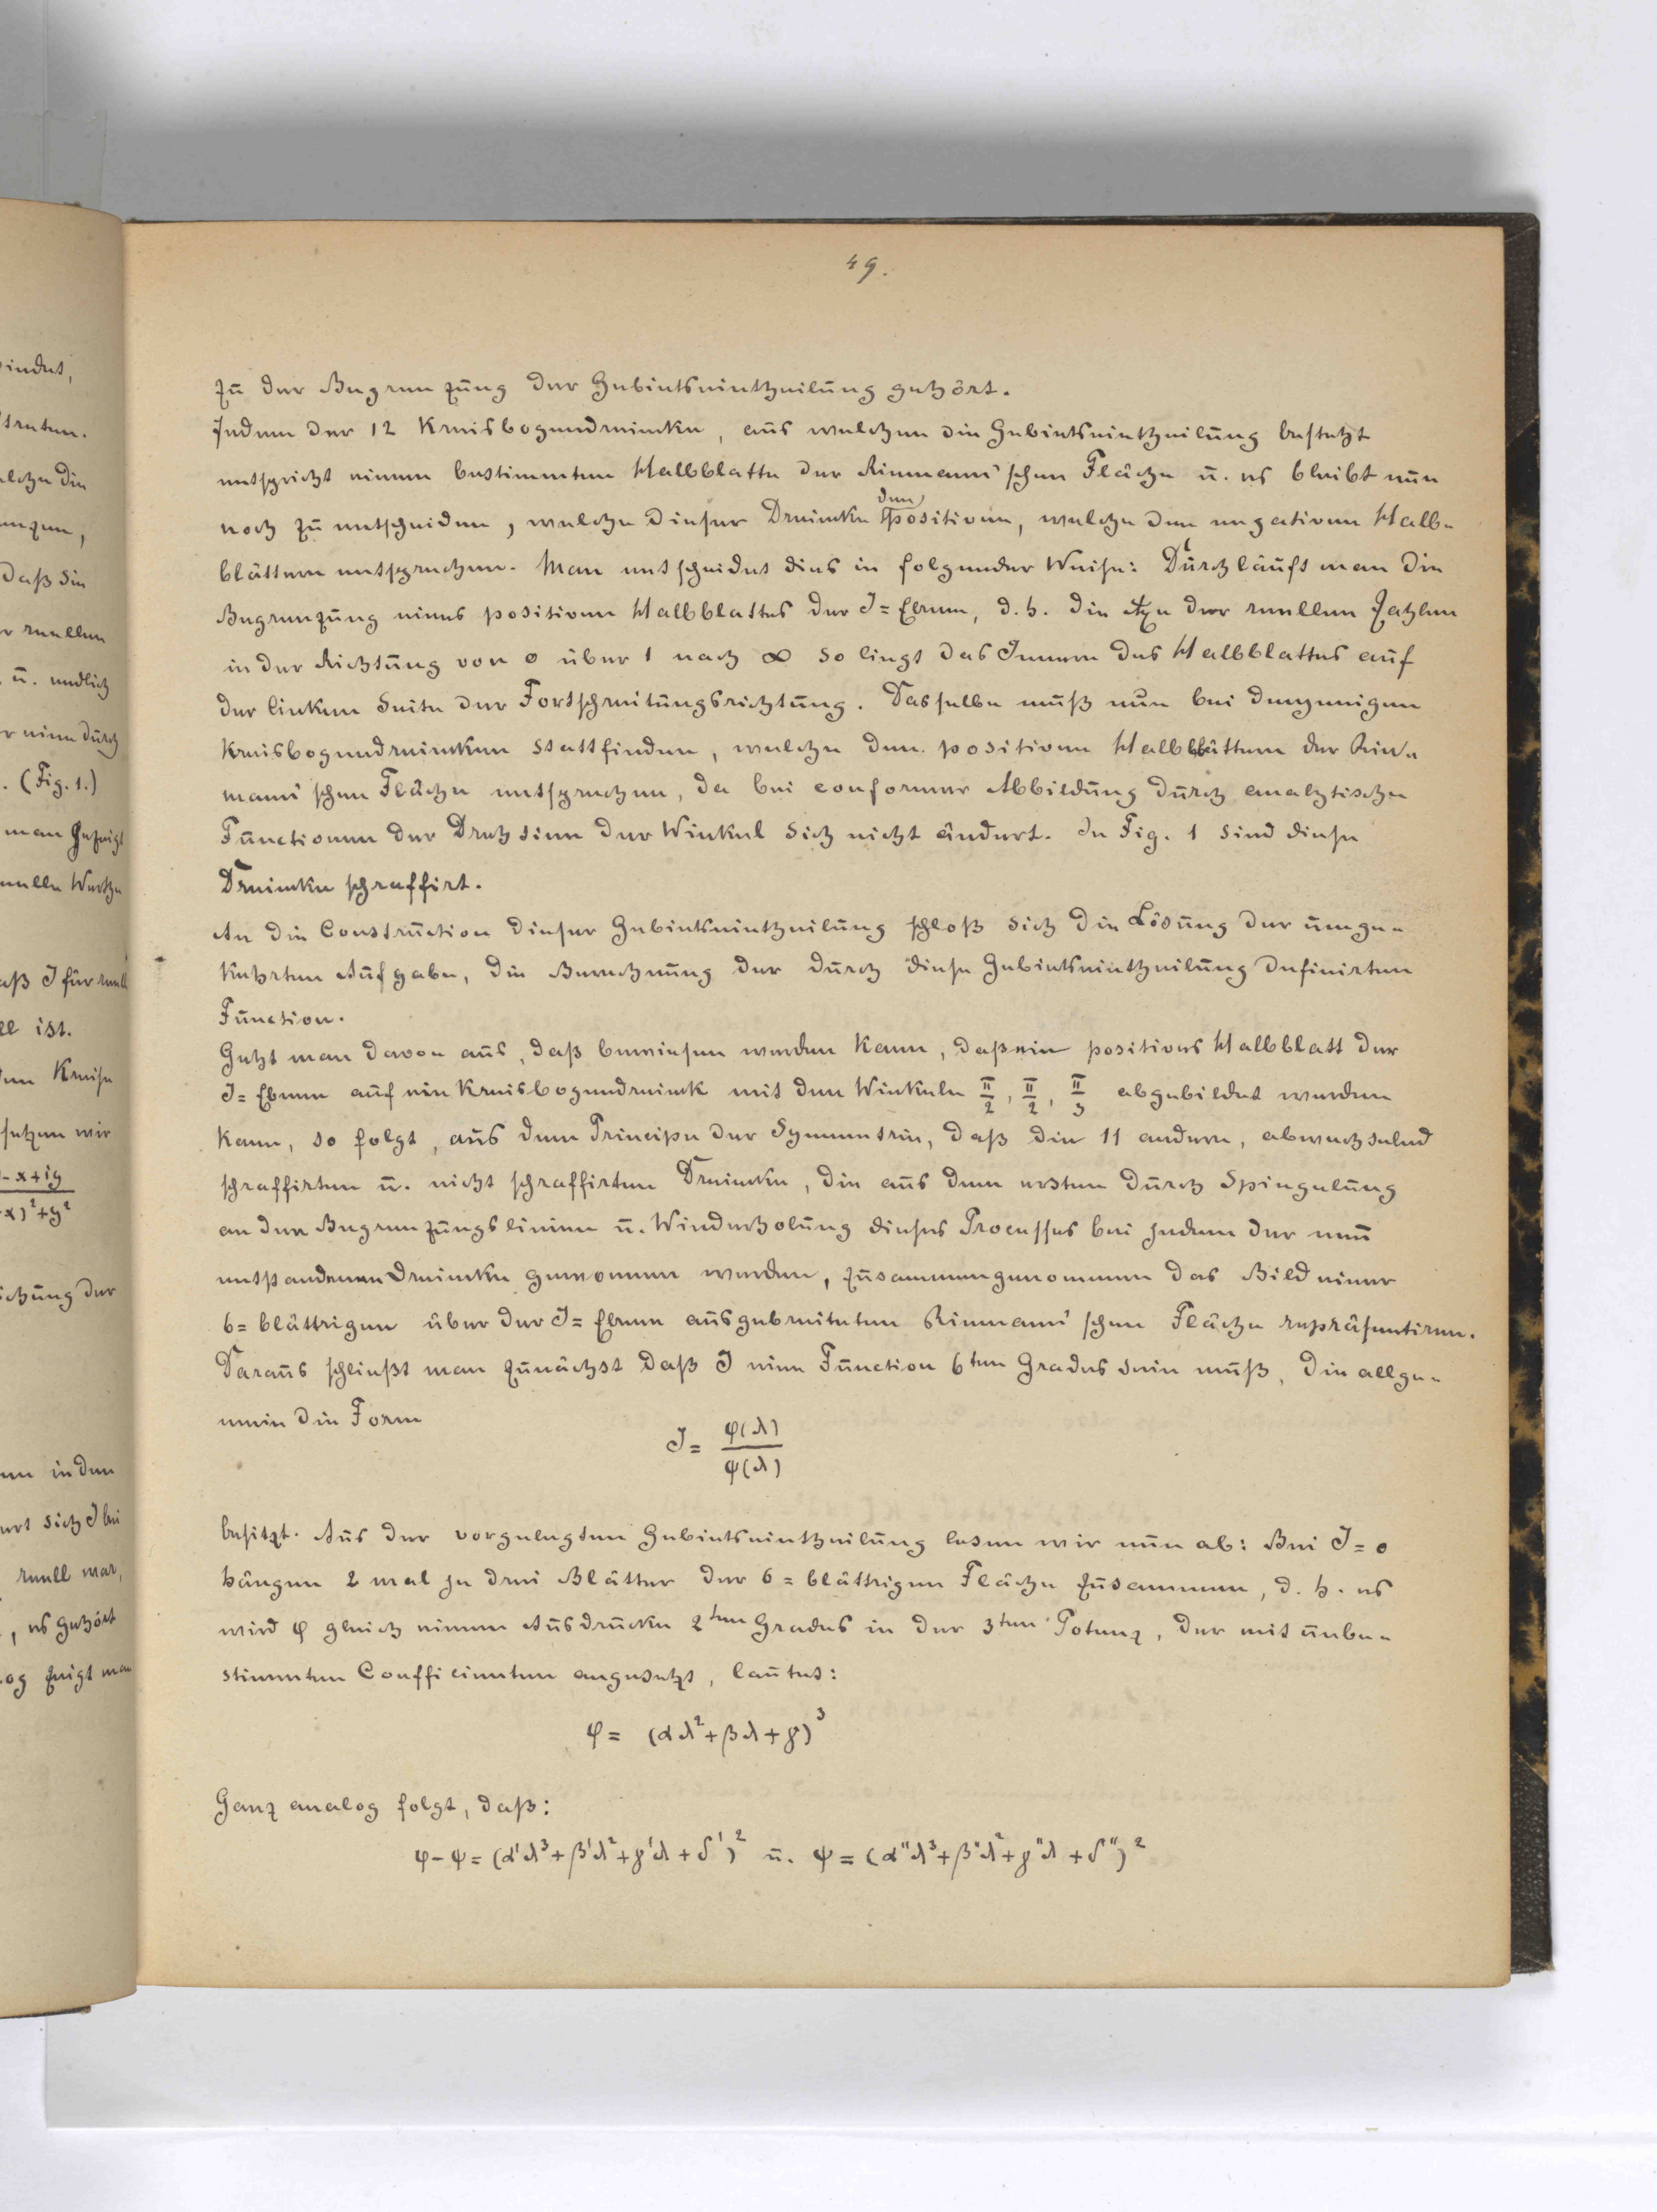 49.
zu der Begrenzung der Gebietseintheilung gehört.
Jedem der 12 Kreisbogendreiecke, aus welchen die Gebietseintheilung besteht
entspricht einem bestimmten Halbblatte der Riemann'schen Fläche u. es bleibt nun
noch zu entscheiden, welche dieser Dreiecke den positiven, welche den negativen Halb-
blättern entsprechen. Man entscheidet dies in folgender Weise: Durchläuft man die
Begrenzung eines positiven Halbblattes der J=Ebene, d.h. die Axe der reellen Zahlen
in der Richtung von 0 über 1 nach ∞ so liegt das Innere des Halbblattes auf
der linken Seite der Fortschreitungsrichtung. Dasselbe muß nun bei denjenigen
Kreisbogendreiecken stattfinden, welche den positiven Halbblättern der Rie-
mann'schen Fläche entsprechen, da bei conformer Abbildung durch analytische
Functionen der Drehsinn der Winkel sich nicht ändert. In Fig. 1 sind diese
Dreiecke schraffirt.
An die Construction dieser Gebietseintheilung schloß sich die Lösung der umge-
kehrten Aufgabe, die Berechnung der durch diese Gebietseintheilung definirten
Function.
Geht man davon aus, daß bewiesen werden kann, daß ein positives Halbblatt der
J=Ebene auf ein Kreisbogendreieck mit den Winkeln π/2, π/2, π/3 abgebildet werden
kann, so folgt, aus dem Principe der Symmetrie, daß die 11 andern, abwechselnd
schraffirten u. nicht schraffirten Dreiecke, die aus dem ersten durch Spiegelung
an den Begrenzungslinien u. Wiederholung dieses Processes bei jedem der neu
entstandenen Dreiecke gewonnen werden, zusammengenommen das Bild einer
6=blättrigen über der J=Ebene ausgebreiteten Riemann'schen Fläche repräsentiren.
Daraus schließt man zunächst daß J eine Function 6ten Grades sein muß, die allge-
mein die Form
J = φ(λ)/ψ(λ)
besitzt. Aus der vorgelegten Gebietseintheilung lesen wir nun ab: Bei J=0
hängen 2 mal je drei Blätter der 6=blättrigen Fläche zusammen, d.h. es
wird φ gleich einem Ausdrucke 2ten Grades in der 3ten Potenz, der mit unbe-
stimmten Coefficienten angesetzt, lautet:
φ = (αλ²+βλ+γ)³
Ganz analog folgt, daß:
φ-ψ = (α'λ³+β'λ²+γ'λ+δ')² u. ψ = (α"λ³+β"λ²+γ"λ+δ")²